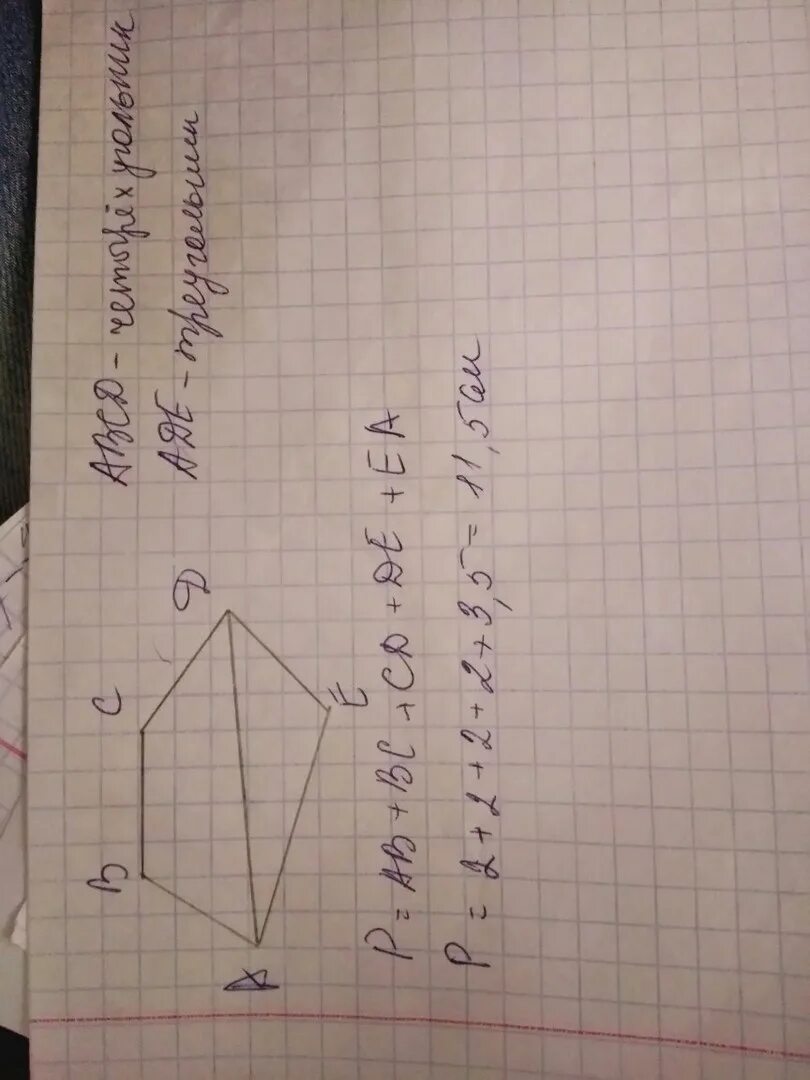 ABCD - четырёх угольник
ADE - треугольник
B C D
A E
P = AB + BC + CD + DE + EA
P = 2 + 2 + 2 + 2 + 3,5 = 11,5 см